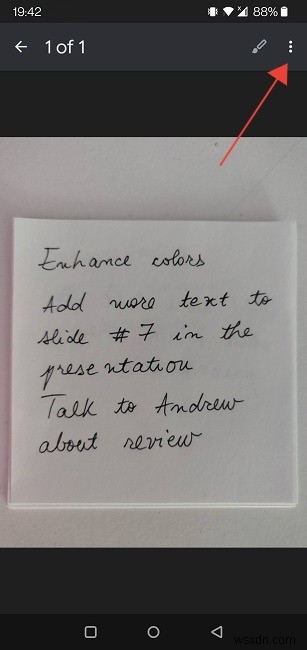 19:42 88%
1 of 1
Enhance colors
Add more text to
slide #7 in the
presentation
Talk to Andrew
about review
wsxdn.com